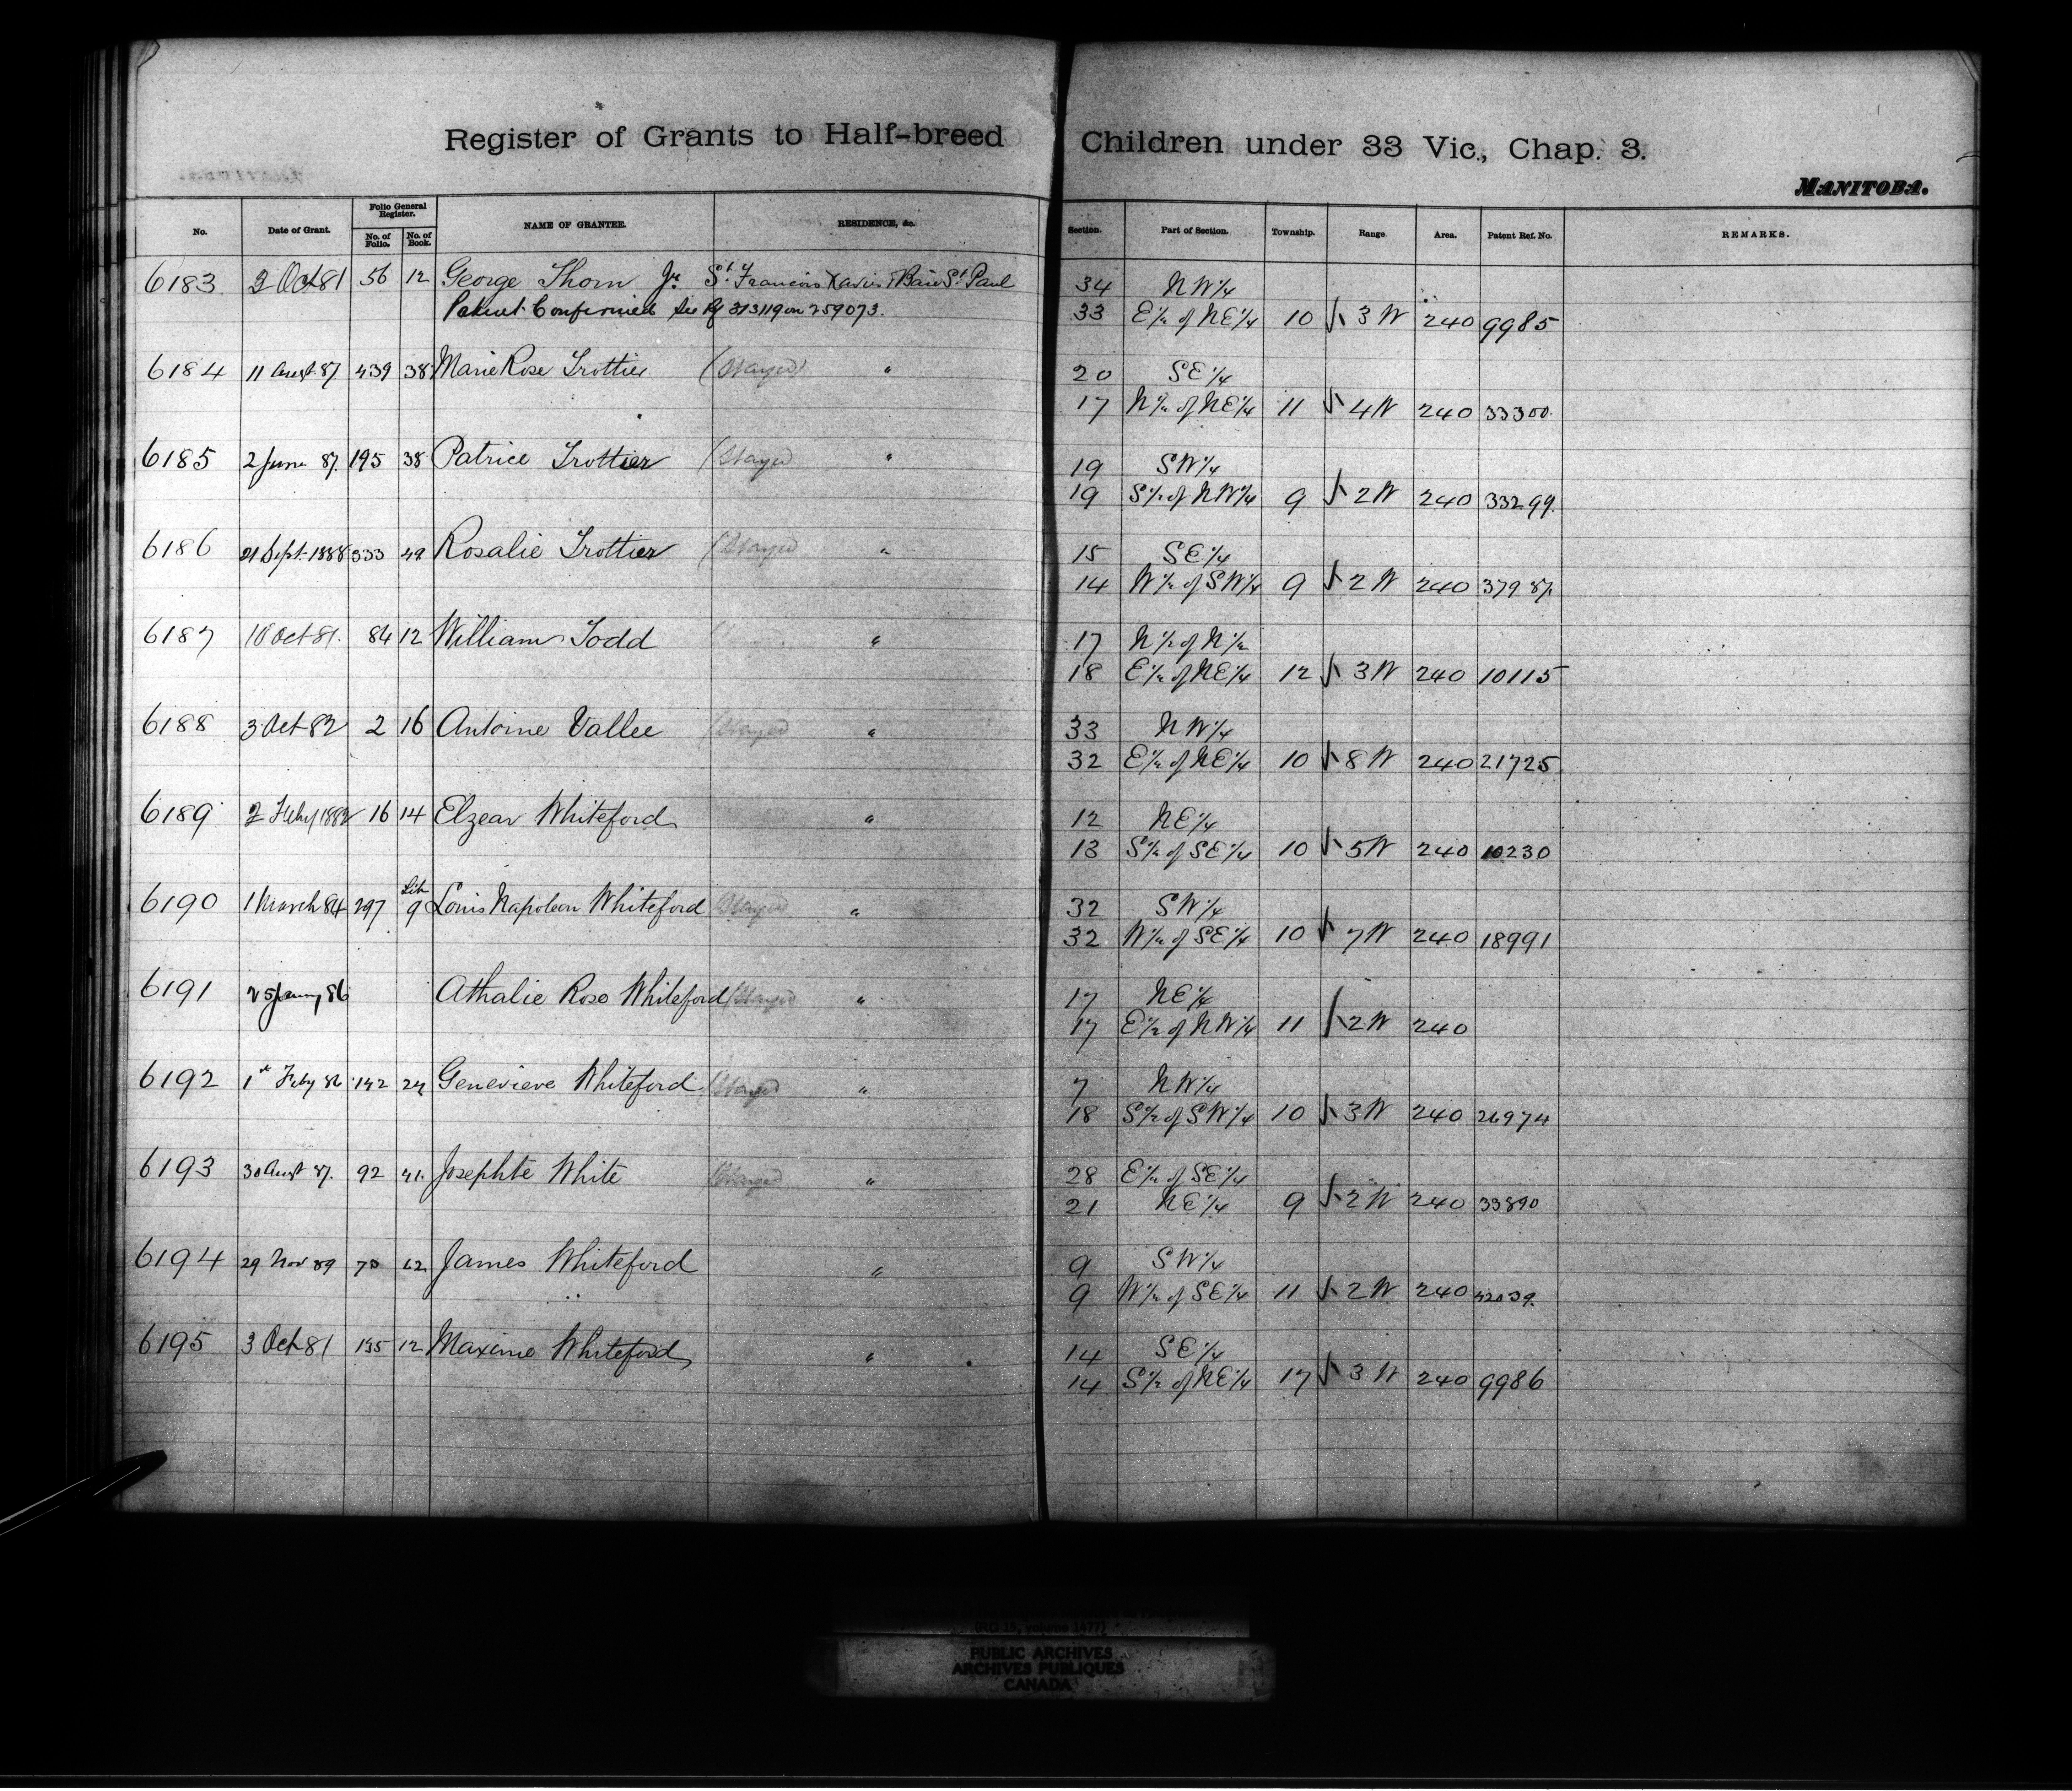 Register of Grants to Half-breed Children under 33 Vic., Chap. 3.
MANITOBA.
No. Date of Grant. Folio General Register. No. of Folio. No. of Book. NAME OF GRANTEE. RESIDENCE, &c. Section. Part of Section. Township. Range Area. Patent Ref. No. REMARKS.
6183 3 Oct 81 56 12 George Thorn Jr. St. Francois Xavier & Baie St. Paul 34 NW 1/4
Patent Confirmed See Rf 313119 on 259073. 33 E 1/2 of NE 1/4 10 3 W 240 9985
6184 11 Augst 87 439 38 Marie Rose Trottier (Stayed) " 20 SE 1/4
17 N 1/2 of NE 1/4 11 4 W 240 33300.
6185 2 June 87. 195 38 Patrice Trottier (Stayed " 19 SW 1/4
19 S 1/2 of NW 1/4 9 2 W 240 33299.
6186 21 Sept. 1888 333 49 Rosalie Trottier (Stayed " 15 SE 1/4
14 W 1/2 of SW 1/4 9 2 W 240 37987.
6187 10 Oct 81. 84 12 William Todd " 17 N 1/2 of N 1/2
18 E 1/2 of NE 1/4 12 3 W 240 10115
6188 3 Oct 82 2 16 Antoine Vallee (Stayed " 33 NW 1/4
32 E 1/2 of NE 1/4 10 8 W 240 21725
6189 2 Feby 1882 16 14 Elzear Whiteford " 12 NE 1/4
13 S 1/2 of SE 1/4 10 5 W 240 10230
6190 1 March 84 297 Lib 9 Louis Napoleon Whiteford (Stayed " 32 SW 1/4
32 W 1/2 of SE 1/4 10 7 W 240 18991
6191 25 Jany 86 Athalie Rose Whiteford (Stayed " 17 NE 1/4
17 E 1/2 of NW 1/4 11 2 W 240
6192 1st Feby 86 142 24 Genevieve Whiteford (Stayed " 7 NW 1/4
18 S 1/2 of SW 1/4 10 3 W 240 26974
6193 30 Augst 87. 92 41. Josephte White (Stayed " 28 E 1/2 of SE 1/4
21 NE 1/4 9 2 W 240 33890
6194 29 Nov 89 73 62 James Whiteford " 9 SW 1/4
9 W 1/2 of SE 1/4 11 2 W 240 42039.
6195 3 Oct 81 135 12 Maxime Whiteford " 14 SE 1/4
14 S 1/2 of NE 1/4 17 3 W 240 9986
(RG 15, volume 1477)
PUBLIC ARCHIVES
ARCHIVES PUBLIQUES
CANADA